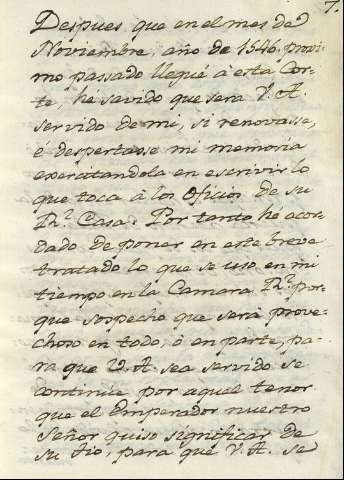 7.
Despues que en el mes de
Noviembre año de 1546. proxi-
mo passado lleguè à esta Cor-
te, hé savido que sera V. A.
servido de mi, si renovasse,
é despertasse mi memoria
exercitandola en escrivir lo
que toca à los Oficios de su
Rl. Casa. Por tanto hé acor-
dado de poner en este breve
tratado lo que se uso en mi
tiempo en la Camara Rl. por-
que sospecho que será prove-
choso en todo, ó en parte, pa-
ra que V. A. sea servido se
continùe por aquel tenor
que el Emperador nuestro
Señor quiso significar de
su tio, para que V. A. se